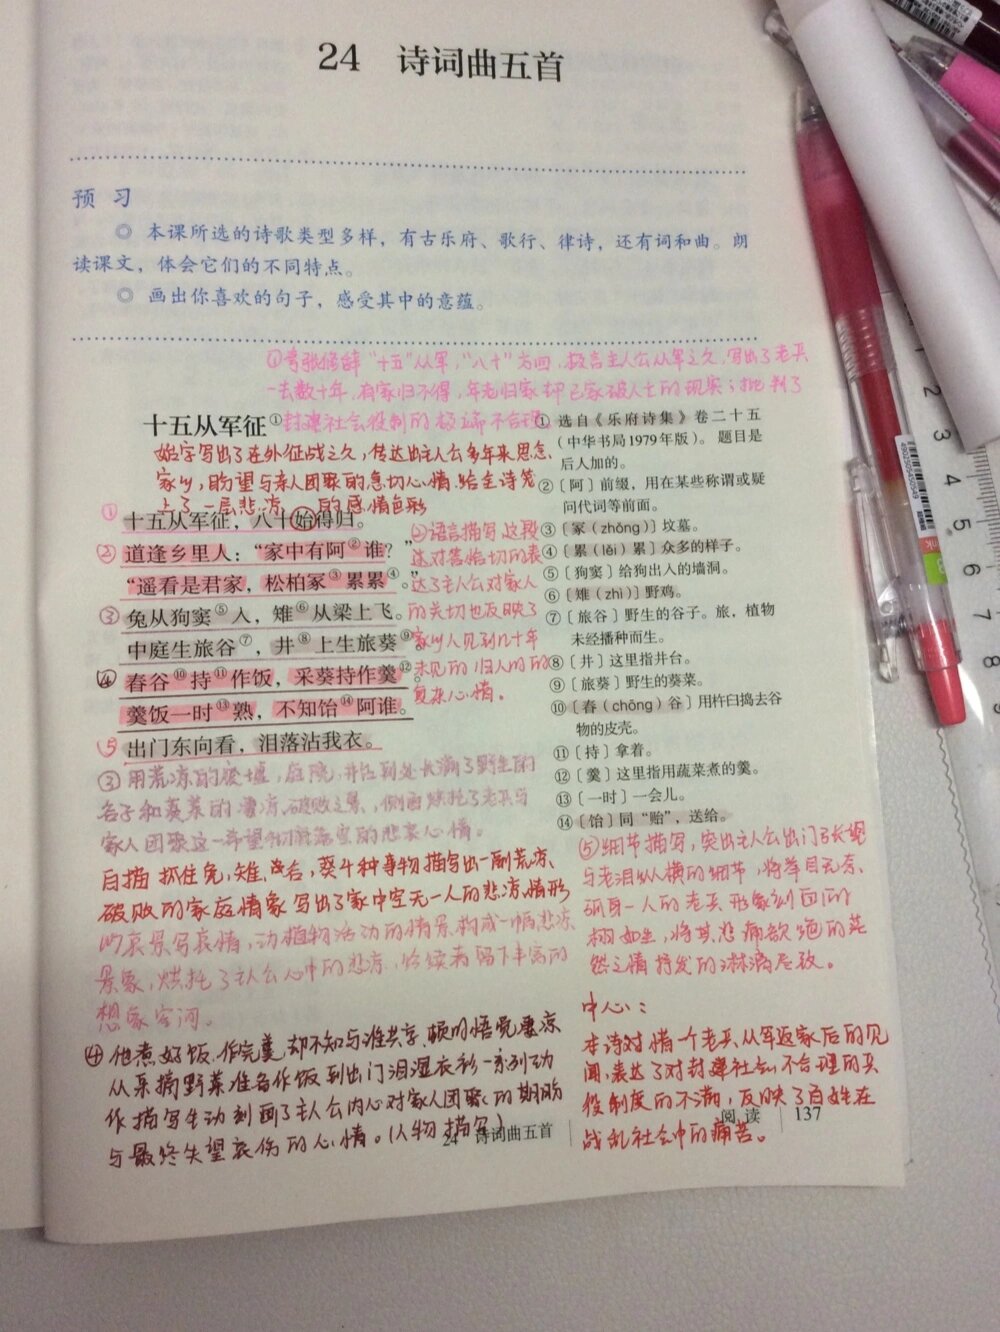 24 诗词曲五首
预 习
◎ 本课所选的诗歌类型多样，有古乐府、歌行、律诗，还有词和曲。朗
读课文，体会它们的不同特点。
◎ 画出你喜欢的句子，感受其中的意蕴。
①夸张修辞"十五"从军，"八十"方回，极言主人公从军之久，写出了老兵
一去数十年，有家归不得，年老归家却已家破人亡的现实；批判了
封建社会役制的极端不合理
十五从军征①
始字写出了在外征战之久，传达出主人公多年来思念
家乡，盼望与亲人团聚的急切心情，给全诗笼
上了一层悲凉的感情色彩
① 十五从军征，八十始得归。
② 道逢乡里人："家中有阿②谁？"
"遥看是君家，松柏冢③累累④。"
③ 兔从狗窦⑤入，雉⑥从梁上飞。
中庭生旅谷⑦，井⑧上生旅葵⑨
④ 舂谷⑩持⑪作饭，采葵持作羹⑫。
羹饭一时⑬熟，不知饴⑭阿谁。
5 出门东向看，泪落沾我衣。
②语言描写，这段
达对答恰切的表
达了主人公对家人
的关切也反映了
家乡人见到几十年
未见的归人的的
复杂心情。
① 选自《乐府诗集》卷二十五
（中华书局1979年版）。题目是
后人加的。
②〔阿〕前缀，用在某些称谓或疑
问代词等前面。
③〔冢（zhǒng）〕坟墓。
④〔累（léi）累〕众多的样子。
⑤〔狗窦〕给狗出入的墙洞。
⑥〔雉（zhì）〕野鸡。
⑦〔旅谷〕野生的谷子。旅，植物
未经播种而生。
⑧〔井〕这里指井台。
⑨〔旅葵〕野生的葵菜。
⑩〔舂（chōng）谷〕用杵臼捣去谷
物的皮壳。
⑪〔持〕拿着。
⑫〔羹〕这里指用蔬菜煮的羹。
⑬〔一时〕一会儿。
⑭〔饴〕同"贻"，送给。
③用荒凉的废墟，庭院，井台到处长满了野生的
谷子和葵菜的凄凉、破败之景，侧面烘托了老兵与
家人团聚这一希望彻底落空的悲哀心情。
白描 抓住兔，雉，谷，葵4种事物描写出一副荒凉、
破败的家庭情景 写出了家中空无一人的悲凉情形
以哀景写哀情，动植物活动的情景构成一幅悲凉
景象，烘托了主人公心中的悲凉，给读者留下丰富的
想象空间。
④他煮好饭、作完羹，却不知与谁共享，顿时悟觉凄凉
从采摘野菜准备作饭到出门泪湿衣衫一系列动
作描写生动刻画了主人公内心对家人团聚的期盼
与最终失望哀伤的心情。（人物描写）
⑤细节描写，突出主人公出门了长望
与老泪纵横的细节，将举目无亲、
孤身一人的老兵形象刻画的
栩如生，将其悲痛欲绝的茫
然之情抒发的淋漓尽致。
中心：
本诗对情一个老兵从军返家后的见
闻，表达了对封建社会不合理的兵
役制度的不满，反映了百姓在
战乱社会中的痛苦。
24 诗词曲五首
阅 读 137
4902505450549